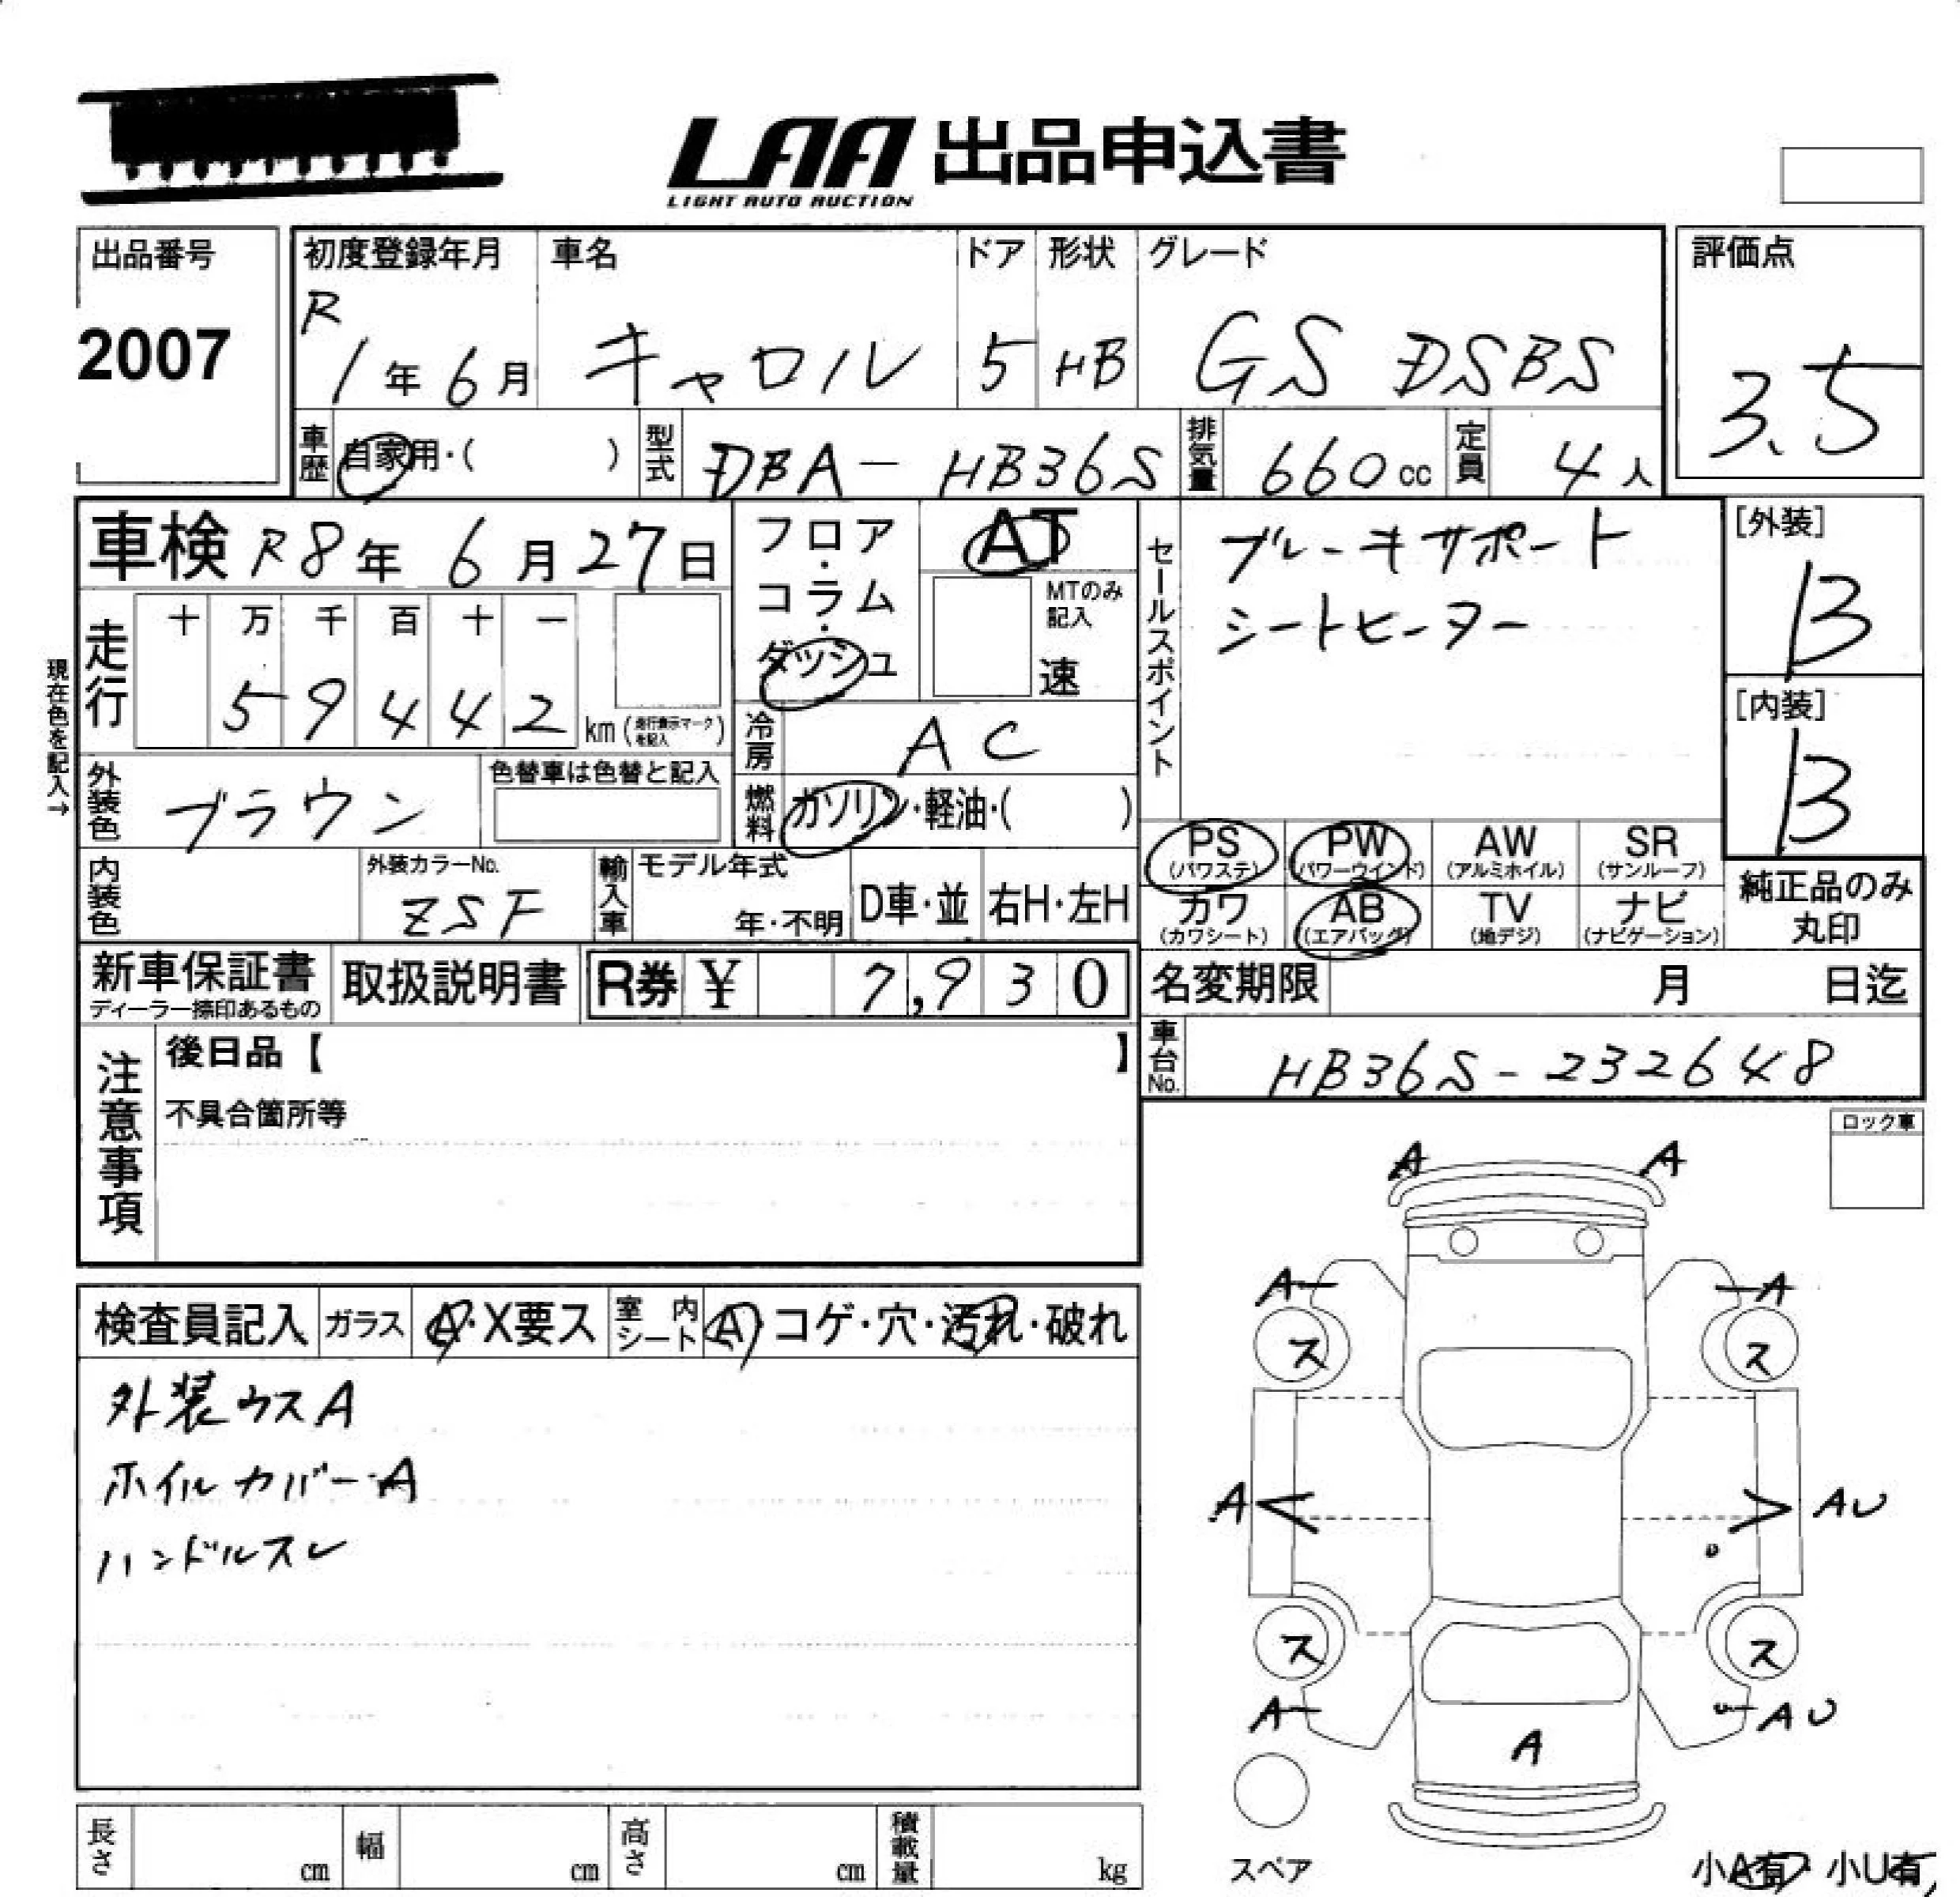 LAA 出品申込書
LIGHT AUTO AUCTION
出品番号
2007
初度登録年月
R
1年6月
車名
キャロル
ドア
5
形状
HB
グレード
GS DSBS
評価点
3.5
車歴
自家用・( )
型式
DBA-HB36S
排気量
660cc
定員
4人
車検 R8年 6月27日
フロア・コラム・ダッシュ
AT
MTのみ記入
速
走行
十 万 千 百 十 一
5 9 4 4 2
km (走行表示マークを記入)
現在色を記入→
冷房
AC
外装色
ブラウン
色替車は色替と記入
燃料
ガソリン・軽油・( )
内装色
外装カラーNo.
ZSF
輸入車
モデル年式
年・不明
D車・並
右H・左H
セールスポイント
ブレーキサポート
シートヒーター
[外装]
B
[内装]
B
PS (パワステ)
PW (パワーウインド)
AW (アルミホイル)
SR (サンルーフ)
カワ (カワシート)
AB (エアバッグ)
TV (地デジ)
ナビ (ナビゲーション)
純正品のみ
丸印
新車保証書
ディーラー捺印あるもの
取扱説明書
R券 ¥ 7,930
名変期限
月 日迄
車台No.
HB36S-232648
注意事項
後日品【 】
不具合箇所等
ロック車
検査員記入
ガラス
A・X要ス
室内シート
A・コゲ・穴・汚れ・破れ
外装ウスA
ホイルカバーA
ハンドルスレ
A A
A A
ス ス
A AU
ス ス
A AU
A
スペア
小A有・小U有
長さ cm
幅 cm
高さ cm
積載量 kg